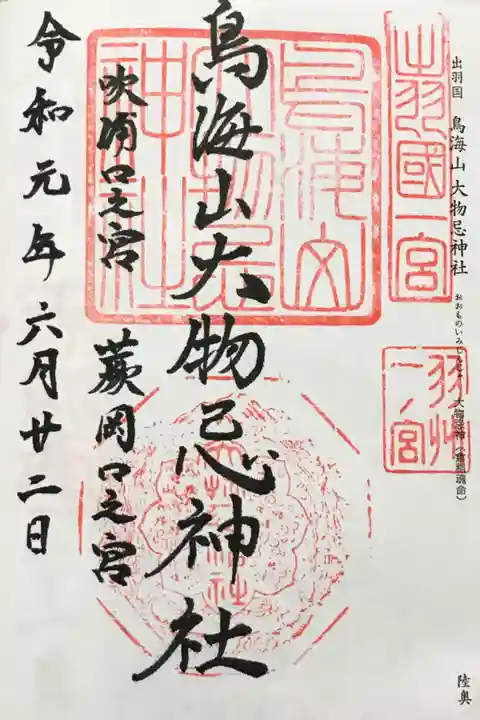 出羽国 鳥海山大物忌神社
おおものいみじんじゃ 大物忌神(倉稲魂命)
陸奥
出羽國一宮
羽州一ノ宮
鳥海山大物忌神社
鳥海山大物忌神社
吹浦口之宮 蕨岡口之宮
令和元年六月廿二日